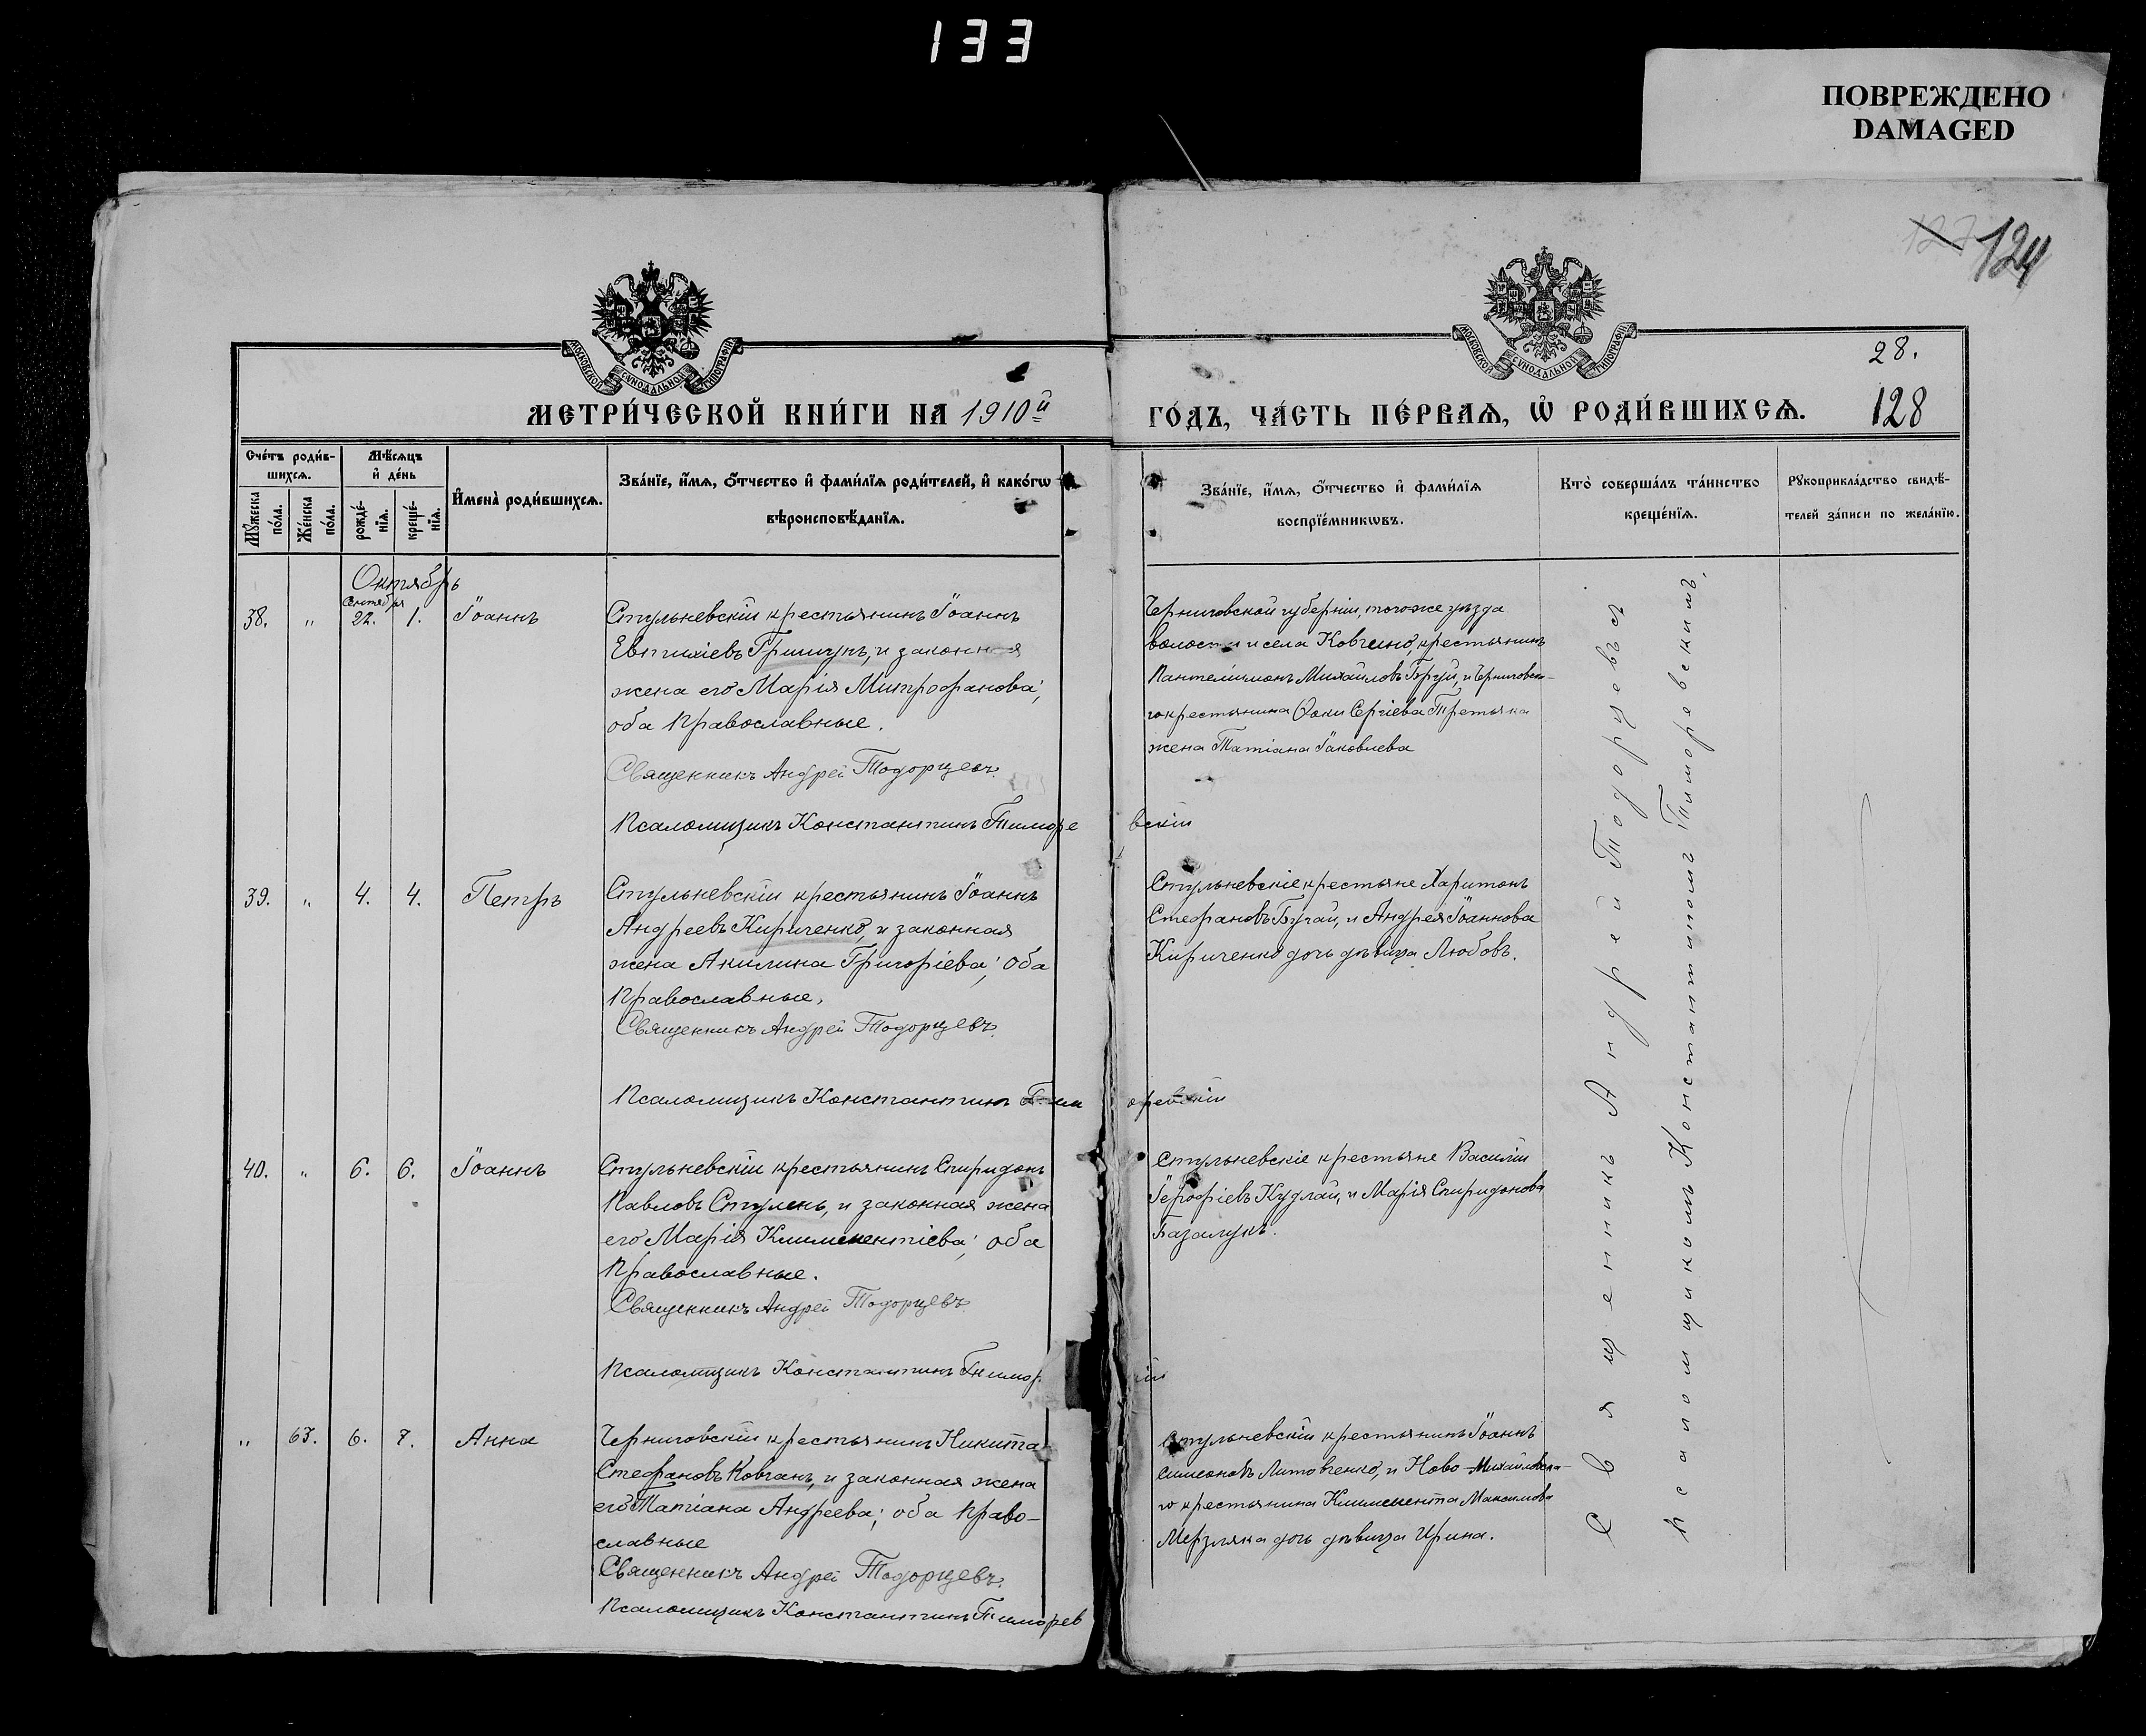 133
ПОВРЕЖДЕНО
DAMAGED
127 124
МОСКОВСКОЙ СѴНОДАЛЬНОЙ ТИПОГРАФІИ
МОСКОВСКОЙ СѴНОДАЛЬНОЙ ТИПОГРАФІИ
28.
МЕТРИ́ЧЕСКОЙ КНИ́ГИ НА 1910й
ГО́ДЪ, ЧА́СТЬ ПЕ́РВАѦ, Ѡ҆ РОДИ́ВШИХСѦ. 128
Сче́тъ роди́в-
шихсѧ.
Мꙋ́жеска по́ла.
Же́нска по́ла.
Мѣ́сѧцъ
и҆ де́нь
рожде́-
нїѧ.
креще́-
нїѧ.
И҆мена̀ роди́вшихсѧ.
Зва́нїе, и҆́мѧ, ѻ҆́тчество и҆ фами́лїѧ роди́телей, и҆ како́гѡ
вѣроисповѣ́данїѧ.
Зва́нїе, и҆́мѧ, ѻ҆́тчество и҆ фами́лїѧ
воспрїе́мникѡвъ.
Кто̀ соверша́лъ та́инство
креще́нїѧ.
Рꙋкоприкла́дство свидѣ́-
телей за́писи по жела́нїю.
Октябрь
Сентября
38. " 22. 1. Іоаннъ
Стульневскій крестьянинъ Іоаннъ
Евтихіевъ Грищукъ, и законная
жена его Марія Митрофанова;
оба православные.
Священникъ Андрей Тодорцевъ.
Псаломщикъ Константинъ Тиморе вскій
Черниговской губерніи, того же уѣзда
волости и села Ковчино, крестьянинъ
Пантелимонъ Михайловъ Бруй, и Черниговска-
го крестьянина Ѳоки Сергіева Третьяка
жена Татіана Іаковлева
39. " 4. 4. Петръ
Стульневскій крестьянинъ Іоаннъ
Андреевъ Кириченко, и законная
жена Акилина Григоріева; оба
православные,
Священникъ Андрей Тодорцевъ.
Псаломщикъ Константинъ Тим оревскій
Стульневскіе крестьяне Харитонъ
Стефановъ Бугай, и Андрея Іоаннова
Кириченко дочь дѣвица Любовь.
40. " 6. 6. Іоаннъ
Стульневскій крестьянинъ Спиридонъ
Павловъ Стулень, и законная жена
его Марія Климентіева; оба
православные.
Священникъ Андрей Тодорцевъ.
Псаломщикъ Константинъ Тимор ій
Стульневскіе крестьяне Василій
Іерофіевъ Кудлай, и Марія Спиридонова
Базалукъ.
" 63. 6. 7. Анна
Черниговскій крестьянинъ Никита
Стефановъ Ковчанъ, и законная жена
его Татіана Андреева; оба право-
славные
Священникъ Андрей Тодорцевъ.
Псаломщикъ Константинъ Тиморев
Стульневскій крестьянинъ Іоаннъ
Симеоновъ Литовченко, и Ново-Михайловска-
го крестьянина Климента Максимова
Мерзляка дочь дѣвица Ирина.
Священникъ Андрей Тодорцевъ съ
псаломщикомъ Константиномъ Тиморевскимъ.